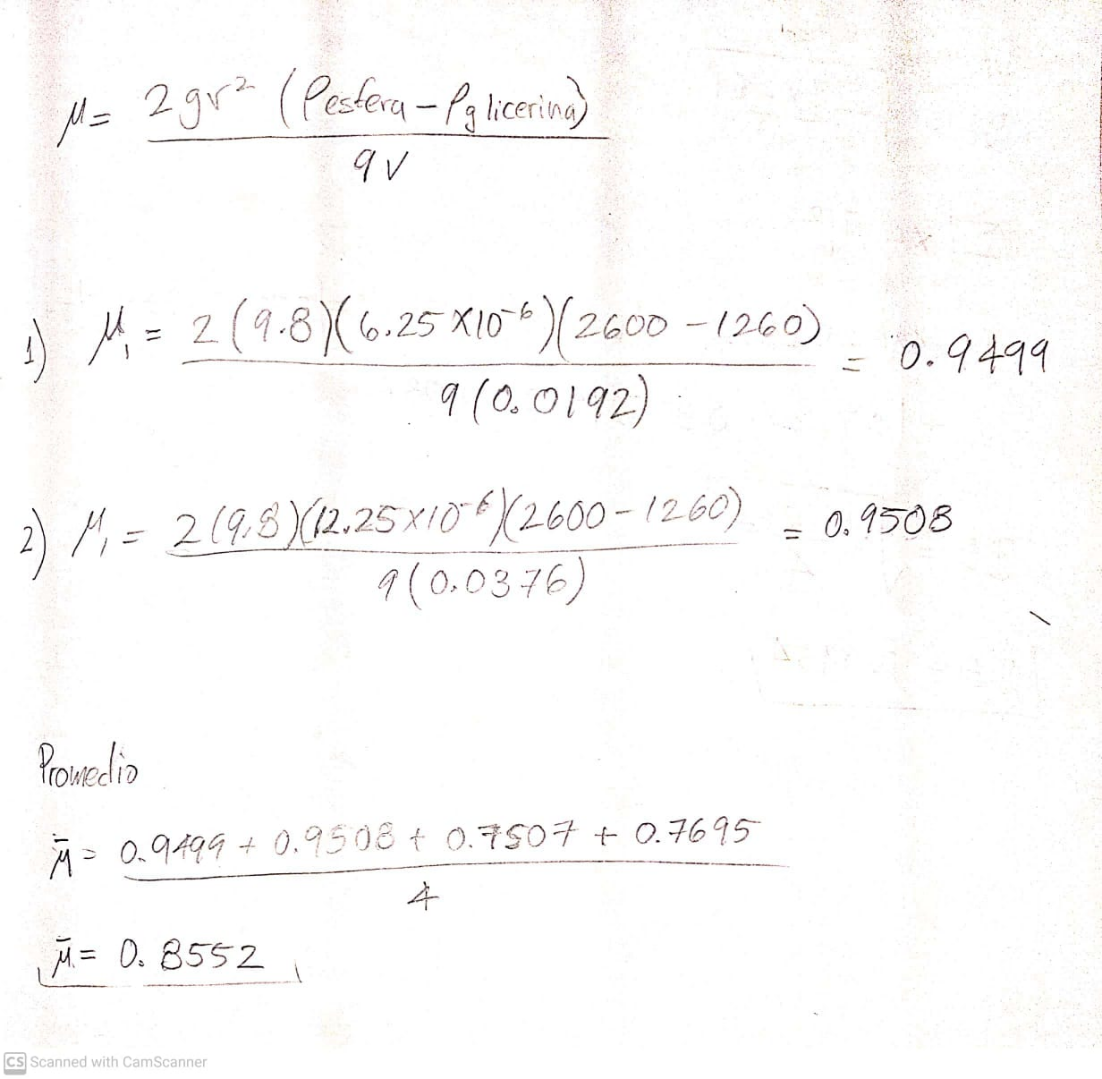 μ = 2gr² (ρesfera - ρglicerina)
9v
1) μ₁ = 2(9.8)(6.25 x10⁻⁶)(2600 - 1260) = 0.9499
9(0.0192)
2) μ₁ = 2(9.8)(12.25x10⁻⁶)(2600 - 1260) = 0.9508
9(0.0376)
Promedio
μ̄ = 0.9499 + 0.9508 + 0.7507 + 0.7695
4
μ̄ = 0.8552
CS Scanned with CamScanner